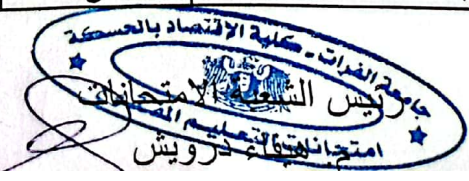 جامعة الفرات - كلية الاقتصاد بالحسكة
رئيس الشعبة الامتحانات
امتحانات التعليم
هيفاء درويش